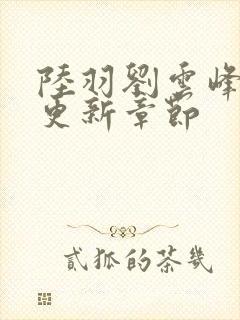 陸羽劉雲峰
更新章節
貳狐的茶幾